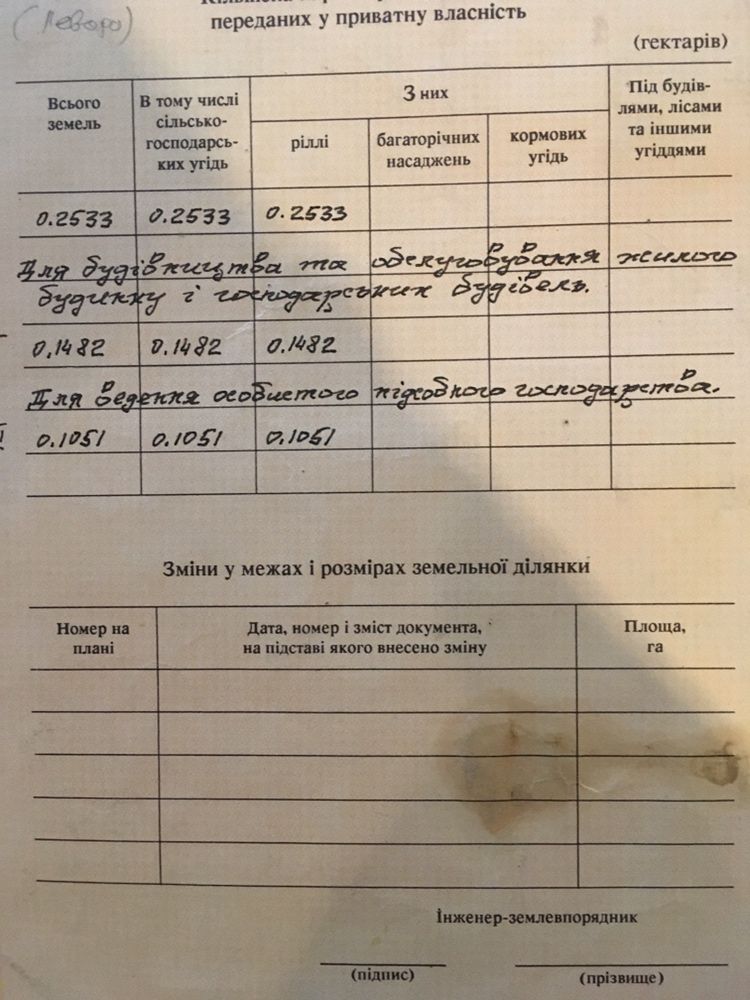 переданих у приватну власність
(гектарів)
Всього земель
В тому числі сільсько-господарсь-ких угідь
З них
Під будів-лями, лісами та іншими угіддями
ріллі
багаторічних насаджень
кормових угідь
0.2533 0.2533 0.2533
Для будівництва та обслуговування жилого
будинку і господарських будівель.
0,1482 0.1482 0.1482
Для ведення особистого підсобного господарства.
0.1051 0.1051 0.1051
Зміни у межах і розмірах земельної ділянки
Номер на плані
Дата, номер і зміст документа, на підставі якого внесено зміну
Площа, га
Інженер-землевпорядник
(підпис)
(прізвище)